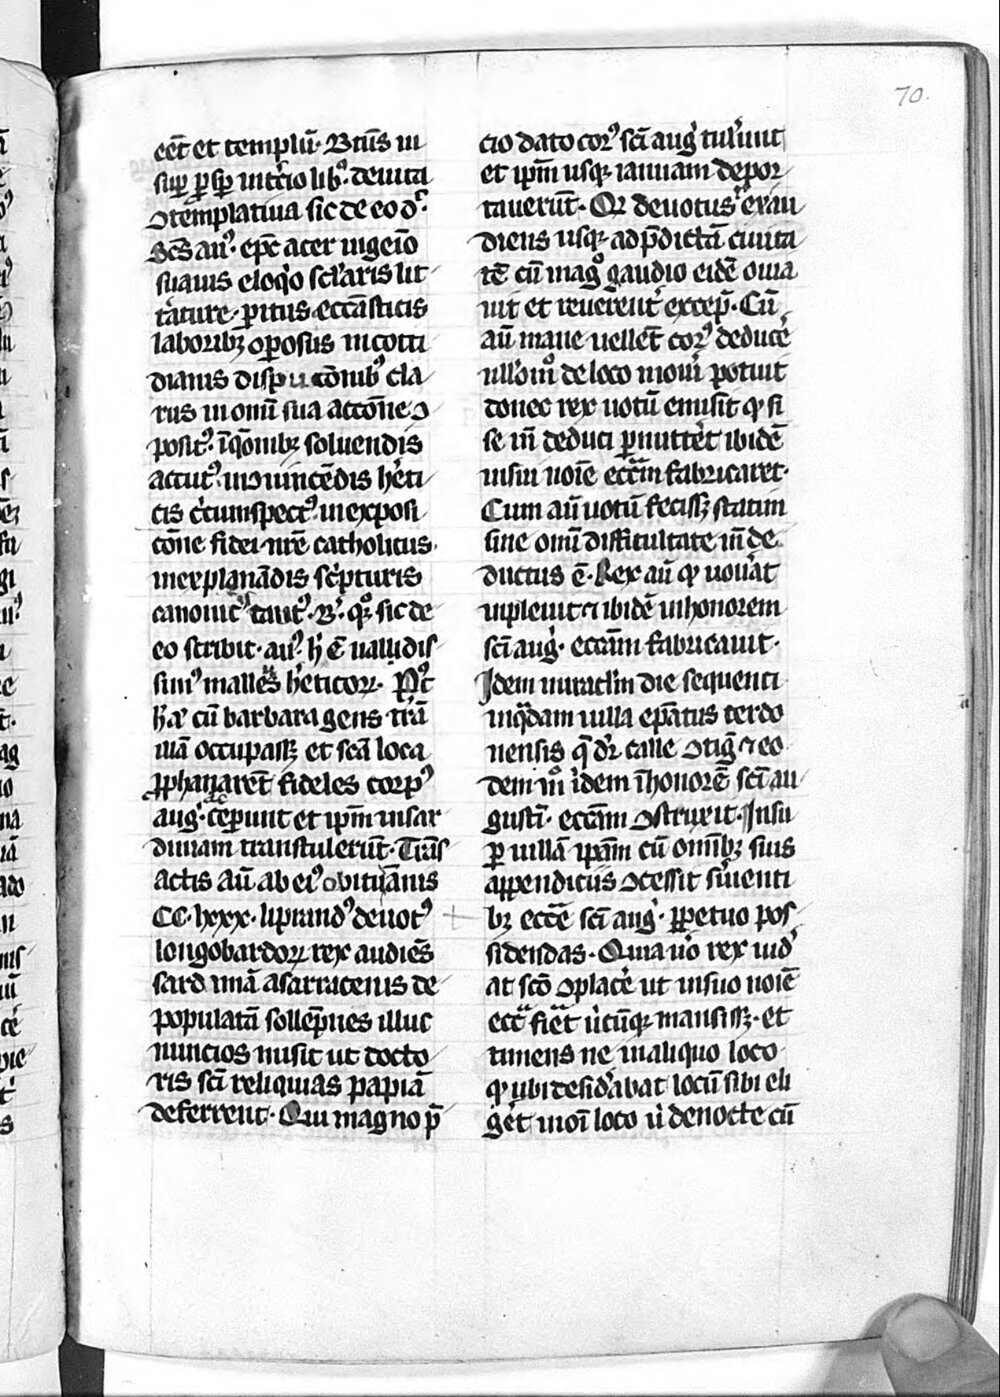 70.
eēt et templū. Btūs in
sup̱ ꝑsp̱ in tercio libꝰ. de uita
ↄtemplatiua sic de eo dꝰ.
Scs̄ auꝰ. ep̄c acer ingeīo
suauis eloqͥo scl̄aris lit
tͣature. ꝑitus. eccāsticis
laboribꝫ oꝑosus in cotti
dianis disputacōnibꝰ cla
rus in omī sua accōne ↄ
positꝰ. ī qͦnibꝫ soluendis
acutꝰ. in ↄuincēdis he̍ti
cis cͥcumspectꝰ. in exposi
cōne fidei nr̄e catholicus.
in explanādis sc̍pturis
canonicͥs cautꝰ.
eo scribit. auꝰ. hͥ ē ualidis
simꝰ malleꝰ he̍ticoꝝ. Pꝰt
hͨ cū barbara gens tr̄ā
illā occupassꝫ et sc̄a loca
ꝓphanarēt fideles corpꝰ
augͥ. ceꝑunt et ip̄m in sar
diniam transtulerūt. Trās
actis aū ab eiꝰ obitu ānis
CC. lxxx. liprandꝰ deuotꝰ
longobardoꝝ rex audiēs
sardiniā a sarracenis de
populatā sollēpnes illuc
nuncios misit ut docto
ris sc̄i reliquias papiā
deferrent. Qui magno p̄
cio dato corꝰ sc̄i augͥ tulͥunt
et ip̄m usqꝫ ianuam depor
tauerūt. Qͦ deuotus rex au
diens usqꝫ ad p̄dictā ciuita
tē cū magͦ gaudio eidē obuia
uit et reuerentͥ excep̱. Cū
aū mane uellēt corꝰ deduce̍
ull̍o mͦ de loco moueͥ potuit
donec rex uotū emisit qͩ si
se īn deduci ꝑmittēt ibidē
in sui noīe eccͣm fabricaret.
Cum aū uotū fecissꝫ statim
sine omī difficultate īn de
ductus ē. Rex aū qͩ uoue̍at
inpleuit ⁊ ibidē in honorem
sc̄i augͥ. eccām fabricauit.
Idem miraclm̄ die sequenti
in qͣdam uilla ep̄atus terdo
nensis q̄ dr̄ casse ↄtigͥ ⁊ eo
dem mͦ ibidem ī honorē sc̄i au
gustiͥ. eccāām ↄstruxit. Insu
ꝑ uillā ip̄am cū omībꝫ suis
appendiciis ↄcessit sͥuienti
bꝫ eccͤ sc̄i augͥ. ꝑpetuo pos
sidendas. Quia uͦo rex uidͥ
at scō ↄplace̍ ut in suo noīe
eccͣ fie̍t ubicūqꝫ mansissꝫ. et
timens ne in aliquo loco
qͩ ubi desid̍abat locū sibi eli
ge̍t in oī loco ubi de nocte cū